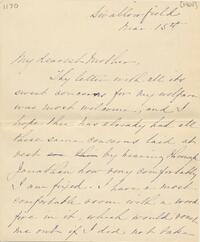 1170
Swallowfield
Mar 15th
My Dearest Mother,
Thy letter with all its
sweet concern for my welfare
was most welcome, and I
hope thee has already had all
those same concerns laid at
rest by hearing through
Jonathan how very comfortably
I am fixed. I have a most
comfortable room with a wood
fire in it, which would
me out if I did not